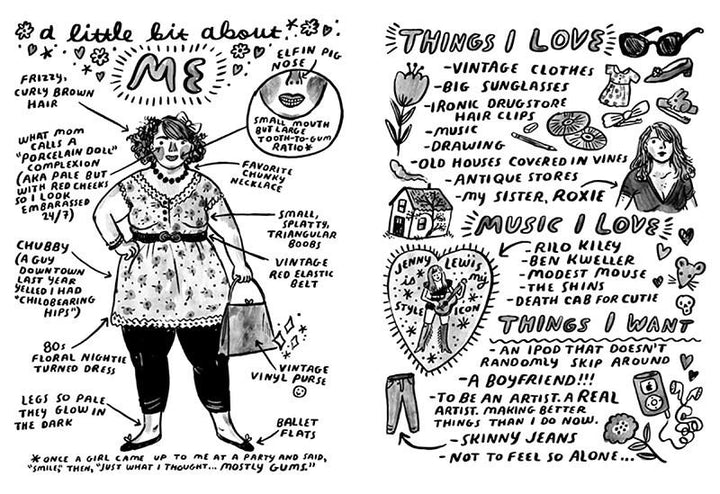 a little bit about
ME
ELFIN PIG
NOSE
FRIZZY,
CURLY BROWN
HAIR
SMALL MOUTH
BUT LARGE
TOOTH-TO-GUM
RATIO*
WHAT MOM
CALLS A
"PORCELAIN DOLL"
COMPLEXION
(AKA PALE BUT
WITH RED CHEEKS
SO I LOOK
EMBARASSED
24/7)
FAVORITE
CHUNKY
NECKLACE
SMALL,
SPLATTY,
TRIANGULAR
BOOBS
CHUBBY
(A GUY
DOWNTOWN
LAST YEAR
YELLED I HAD
"CHILDBEARING
HIPS")
VINTAGE
RED ELASTIC
BELT
80s
FLORAL NIGHTIE
TURNED DRESS
VINTAGE
VINYL PURSE
LEGS SO PALE
THEY GLOW IN
THE DARK
BALLET
FLATS
*ONCE A GIRL CAME UP TO ME AT A PARTY AND SAID,
"SMILE," THEN, "JUST WHAT I THOUGHT... MOSTLY GUMS."
THINGS I LOVE
-VINTAGE CLOTHES
-BIG SUNGLASSES
-IRONIC DRUGSTORE
HAIR CLIPS
-MUSIC
-DRAWING
-OLD HOUSES COVERED IN VINES
-ANTIQUE STORES
-MY SISTER, ROXIE
MUSIC I LOVE
-RILO KILEY
-BEN KWELLER
-MODEST MOUSE
-THE SHINS
-DEATH CAB FOR CUTIE
JENNY LEWIS
is my
STYLE ICON
THINGS I WANT
-AN IPOD THAT DOESN'T
RANDOMLY SKIP AROUND
-A BOYFRIEND!!!
-TO BE AN ARTIST. A REAL
ARTIST. MAKING BETTER
THINGS THAN I DO NOW.
-SKINNY JEANS
-NOT TO FEEL SO ALONE...